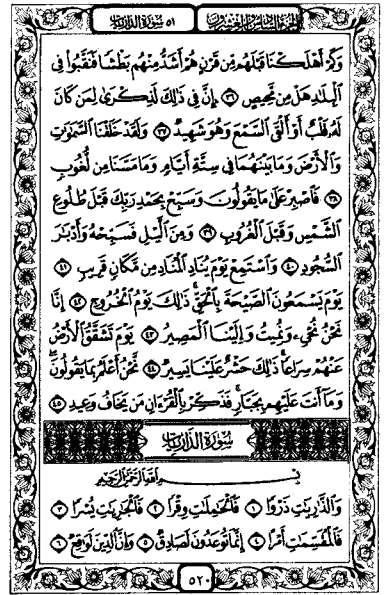 الجزء السادس والعشرون ٥١ سورة الذاريات
وَكَمْ أَهْلَكْنَا قَبْلَهُم مِّن قَرْنٍ هُمْ أَشَدُّ مِنْهُم بَطْشًا فَنَقَّبُوا۟ فِى
ٱلْبِلَٰدِ هَلْ مِن مَّحِيصٍ ٣٦ إِنَّ فِى ذَٰلِكَ لَذِكْرَىٰ لِمَن كَانَ
لَهُۥ قَلْبٌ أَوْ أَلْقَى ٱلسَّمْعَ وَهُوَ شَهِيدٌ ٣٧ وَلَقَدْ خَلَقْنَا ٱلسَّمَٰوَٰتِ
وَٱلْأَرْضَ وَمَا بَيْنَهُمَا فِى سِتَّةِ أَيَّامٍ وَمَا مَسَّنَا مِن لُّغُوبٍ
٣٨ فَٱصْبِرْ عَلَىٰ مَا يَقُولُونَ وَسَبِّحْ بِحَمْدِ رَبِّكَ قَبْلَ طُلُوعِ
ٱلشَّمْسِ وَقَبْلَ ٱلْغُرُوبِ ٣٩ وَمِنَ ٱلَّيْلِ فَسَبِّحْهُ وَأَدْبَٰرَ
ٱلسُّجُودِ ٤٠ وَٱسْتَمِعْ يَوْمَ يُنَادِ ٱلْمُنَادِ مِن مَّكَانٍ قَرِيبٍ ٤١
يَوْمَ يَسْمَعُونَ ٱلصَّيْحَةَ بِٱلْحَقِّ ذَٰلِكَ يَوْمُ ٱلْخُرُوجِ ٤٢ إِنَّا
نَحْنُ نُحْىِۦ وَنُمِيتُ وَإِلَيْنَا ٱلْمَصِيرُ ٤٣ يَوْمَ تَشَقَّقُ ٱلْأَرْضُ
عَنْهُمْ سِرَاعًا ذَٰلِكَ حَشْرٌ عَلَيْنَا يَسِيرٌ ٤٤ نَّحْنُ أَعْلَمُ بِمَا يَقُولُونَ
وَمَآ أَنتَ عَلَيْهِم بِجَبَّارٍ فَذَكِّرْ بِٱلْقُرْءَانِ مَن يَخَافُ وَعِيدِ ٤٥
سُورَةُ الذَّارِيَاتِ
بِسْمِ ٱللَّهِ ٱلرَّحْمَٰنِ ٱلرَّحِيمِ
وَٱلذَّٰرِيَٰتِ ذَرْوًا ١ فَٱلْحَٰمِلَٰتِ وِقْرًا ٢ فَٱلْجَٰرِيَٰتِ يُسْرًا ٣
فَٱلْمُقَسِّمَٰتِ أَمْرًا ٤ إِنَّمَا تُوعَدُونَ لَصَادِقٌ ٥ وَإِنَّ ٱلدِّينَ لَوَٰقِعٌ ٦
٥٢٠